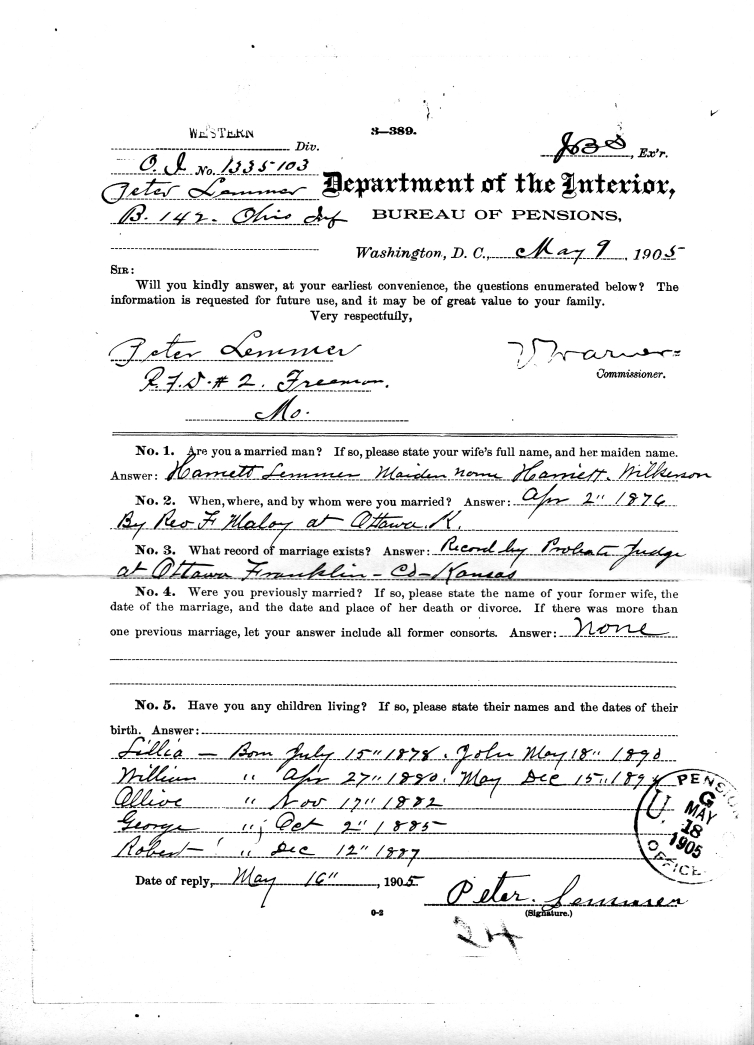 WESTERN Div.
3—389.
JBS, Ex'r.
O. I. No. 1335103
Peter Lemmer
Department of the Interior,
B. 142. Ohio Inf
BUREAU OF PENSIONS,
Washington, D. C., May 9, 1905
SIR:
Will you kindly answer, at your earliest convenience, the questions enumerated below? The
information is requested for future use, and it may be of great value to your family.
Very respectfully,
Peter Lemmer
V. Warner
R.F.D. # 2. Freeman.
Commissioner.
Mo.
No. 1. Are you a married man? If so, please state your wife's full name, and her maiden name.
Answer: Harriett Lemmer Maiden name Harriett. Wilkerson
No. 2. When, where, and by whom were you married? Answer: Apr 2" 1876
By Rev F Maloy at Ottawa. K.
No. 3. What record of marriage exists? Answer: Record by Probate Judge
at Ottawa Franklin - Co - Kansas
No. 4. Were you previously married? If so, please state the name of your former wife, the
date of the marriage, and the date and place of her death or divorce. If there was more than
one previous marriage, let your answer include all former consorts. Answer: None
No. 5. Have you any children living? If so, please state their names and the dates of their
birth. Answer:
Lillia — Born July 15" 1878. John May 18" 1890
William " Apr 27" 1880. May Dec 15" 189
Allive " Nov 17" 1882
George " Oct 2" 1885
Robert " Dec 12" 1887
PENSION OFFICE
U. G
MAY
18
1905
Date of reply, May 16", 1905
Peter. Lemmer
(Signature.)
0-2
24